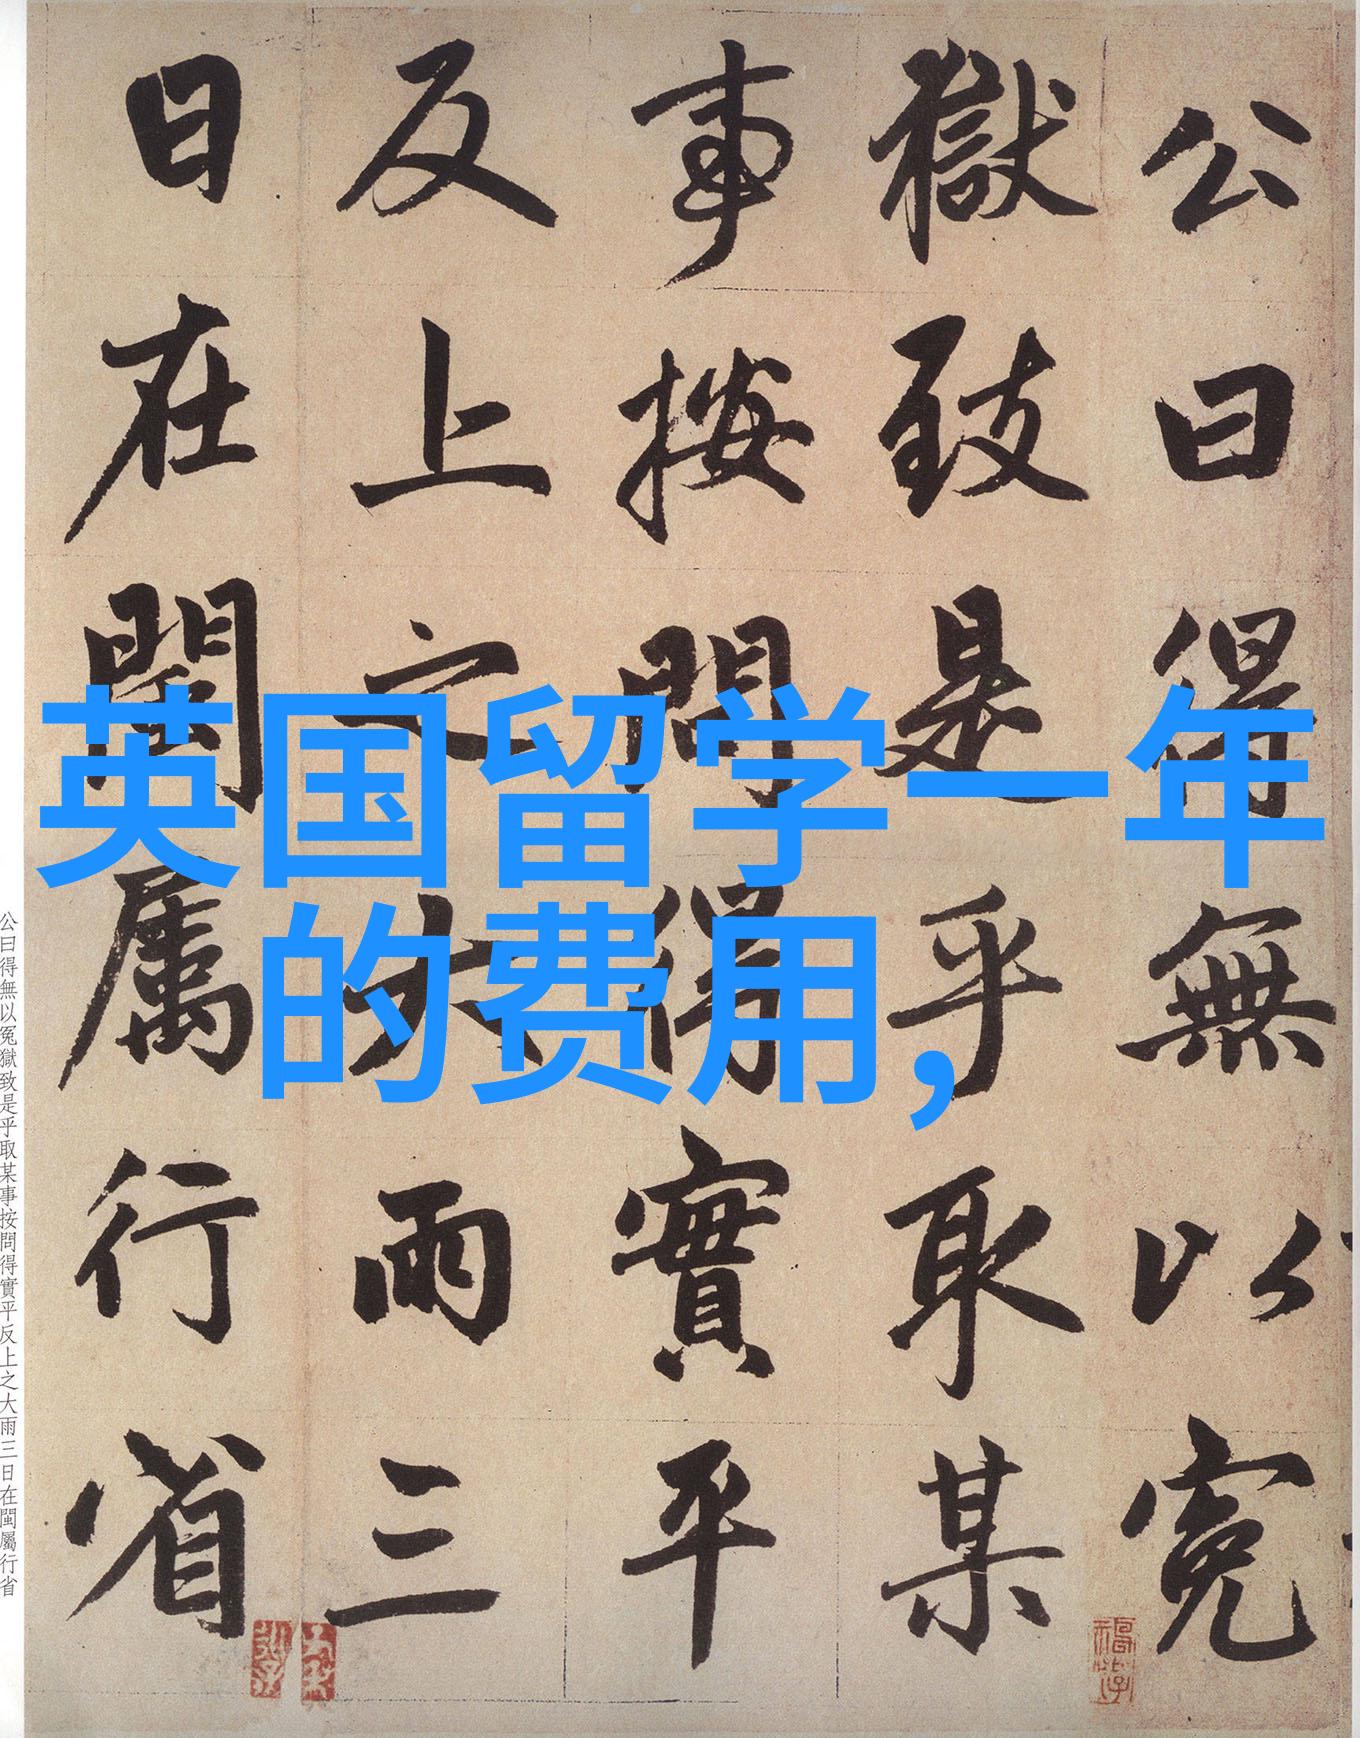 公曰得無以冤
獄致是乎取某
事按問得實平
反上之大雨三
日在閩屬行省
公曰得無以冤獄致是乎取某事按問得實平反上之大雨三日在閩屬行省
英国留学一年
的费用，